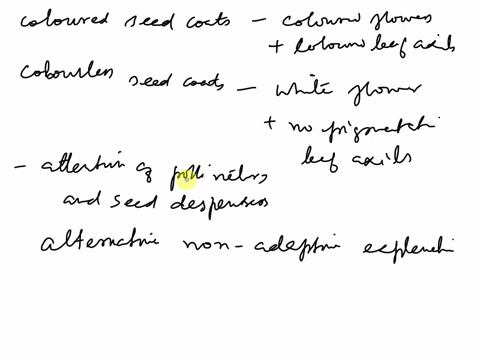 coloured seed coats - coloured flowers
+ coloured leaf axils
colourless seed coats - white flower
+ no pigmentati
leaf axils
- attention of pollinators
and seed dispensers
alternative non-adaptive explanati